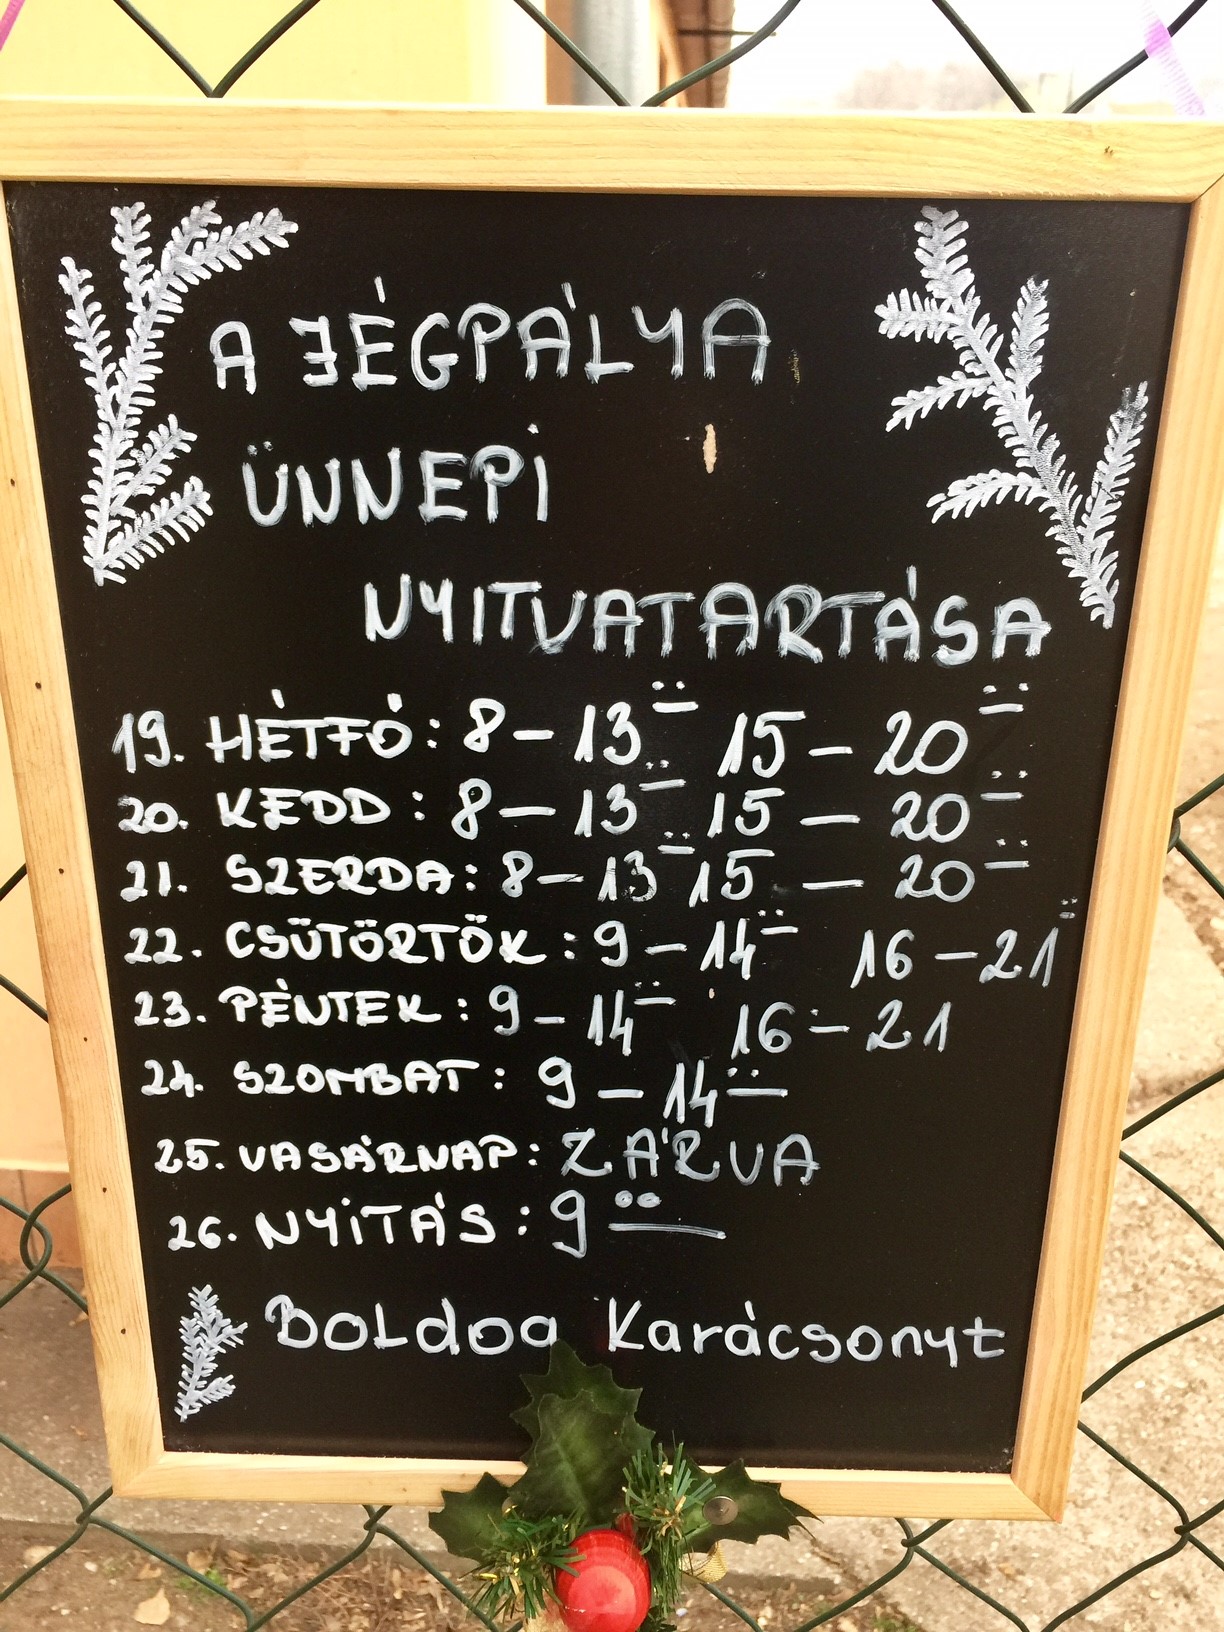 A JÉGPÁLYA
ÜNNEPI
NYITVATARTÁSA
19. HÉTFŐ: 8 – 13:00 15 – 20:00
20. KEDD: 8 – 13:00 15 – 20:00
21. SZERDA: 8 – 13:00 15 – 20:00
22. CSÜTÖRTÖK: 9 – 14:00 16 – 21:00
23. PÉNTEK: 9 – 14:00 16 – 21
24. SZOMBAT: 9 – 14:00
25. VASÁRNAP: ZÁRVA
26. NYITÁS: 9:00
Boldog Karácsonyt